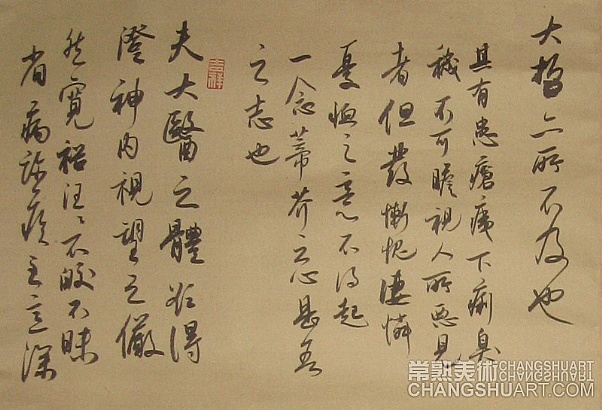 大哲亦所不及也
其有患瘡痍下痢臭
穢不可瞻視人所惡見
者但發慚愧悽憐
憂恤之意不得起
一念蒂芥之心是吾
之志也
吉祥
夫大醫之體欲得
澄神內視望之儼
然寬裕汪汪不皎不昧
省病診疾至意深
常熟美術 CHANGSHUART
CHANGSHUART.COM